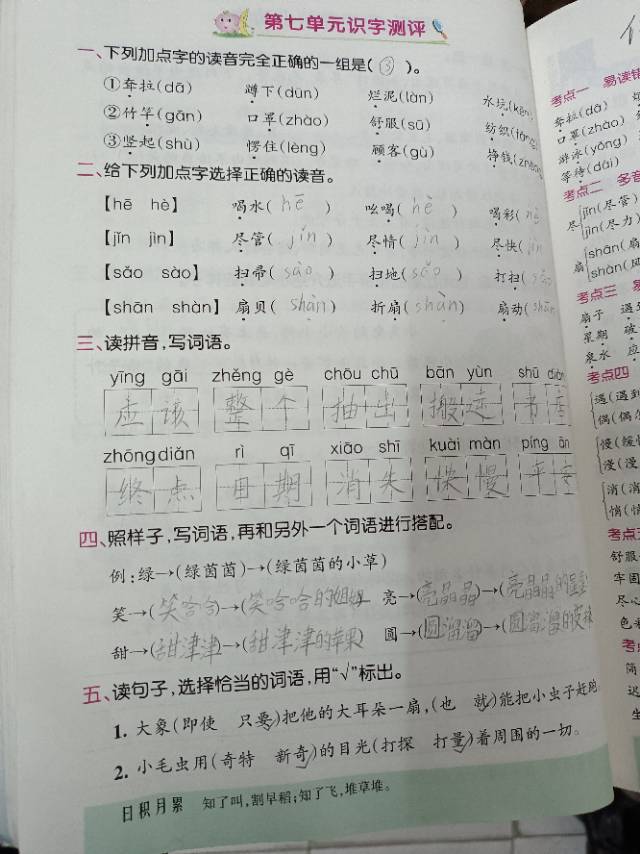 第七单元识字测评
一、下列加点字的读音完全正确的一组是(③)。
①耷拉(dā) 蹲下(dūn) 烂泥(làn) 水坑(kēn
②竹竿(gān) 口罩(zhào) 舒服(sū) 纺织(fǎng
③竖起(shù) 愣住(lèng) 顾客(gù) 挣钱(zhèng
二、给下列加点字选择正确的读音。
【hē hè】 喝水(hē) 吆喝(hè) 喝彩(hè
【jǐn jìn】 尽管(jǐn) 尽情(jìn) 尽快(jǐn
【sǎo sào】 扫帚(sào) 扫地(sǎo) 打扫(sǎo
【shān shàn】 扇贝(shàn) 折扇(shàn) 扇动(shān
三、读拼音,写词语。
yīng gāi zhěng gè chōu chū bān yùn shū diàn
应该 整个 抽出 搬运 书店
zhōng diǎn rì qī xiāo shī kuài màn píng ān
终点 日期 消失 快慢 平安
四、照样子,写词语,再和另外一个词语进行搭配。
例:绿→(绿茵茵)→(绿茵茵的小草)
笑→(笑哈哈)→(笑哈哈的姐姐 亮→(亮晶晶)→(亮晶晶的星
甜→(甜津津)→(甜津津的苹果) 圆→(圆溜溜)→(圆溜溜的
五、读句子,选择恰当的词语,用“√”标出。
1. 大象(即使 只要√)把他的大耳朵一扇,(也 就√)能把小虫子赶跑
2. 小毛虫用(奇特 新奇√)的目光(打探 打量√)着周围的一切。
日积月累 知了叫,割早稻;知了飞,堆草堆。
考点一 易读错
耷拉(dā)
口罩(zhào)
游泳(yǒng)
等待(dài)
考点二 多音
尽 jǐn(尽管)
jìn(尽力)
扇 shān(扇
shàn(
考点三 易
扇子 遇
星期 破
泉水 应
考点四
遇(遇到
偶(偶
慢(缓慢
漫(漫
消(消
悄(悄
考点五
舒服
牢固
尽心
色彩
简
迟
生